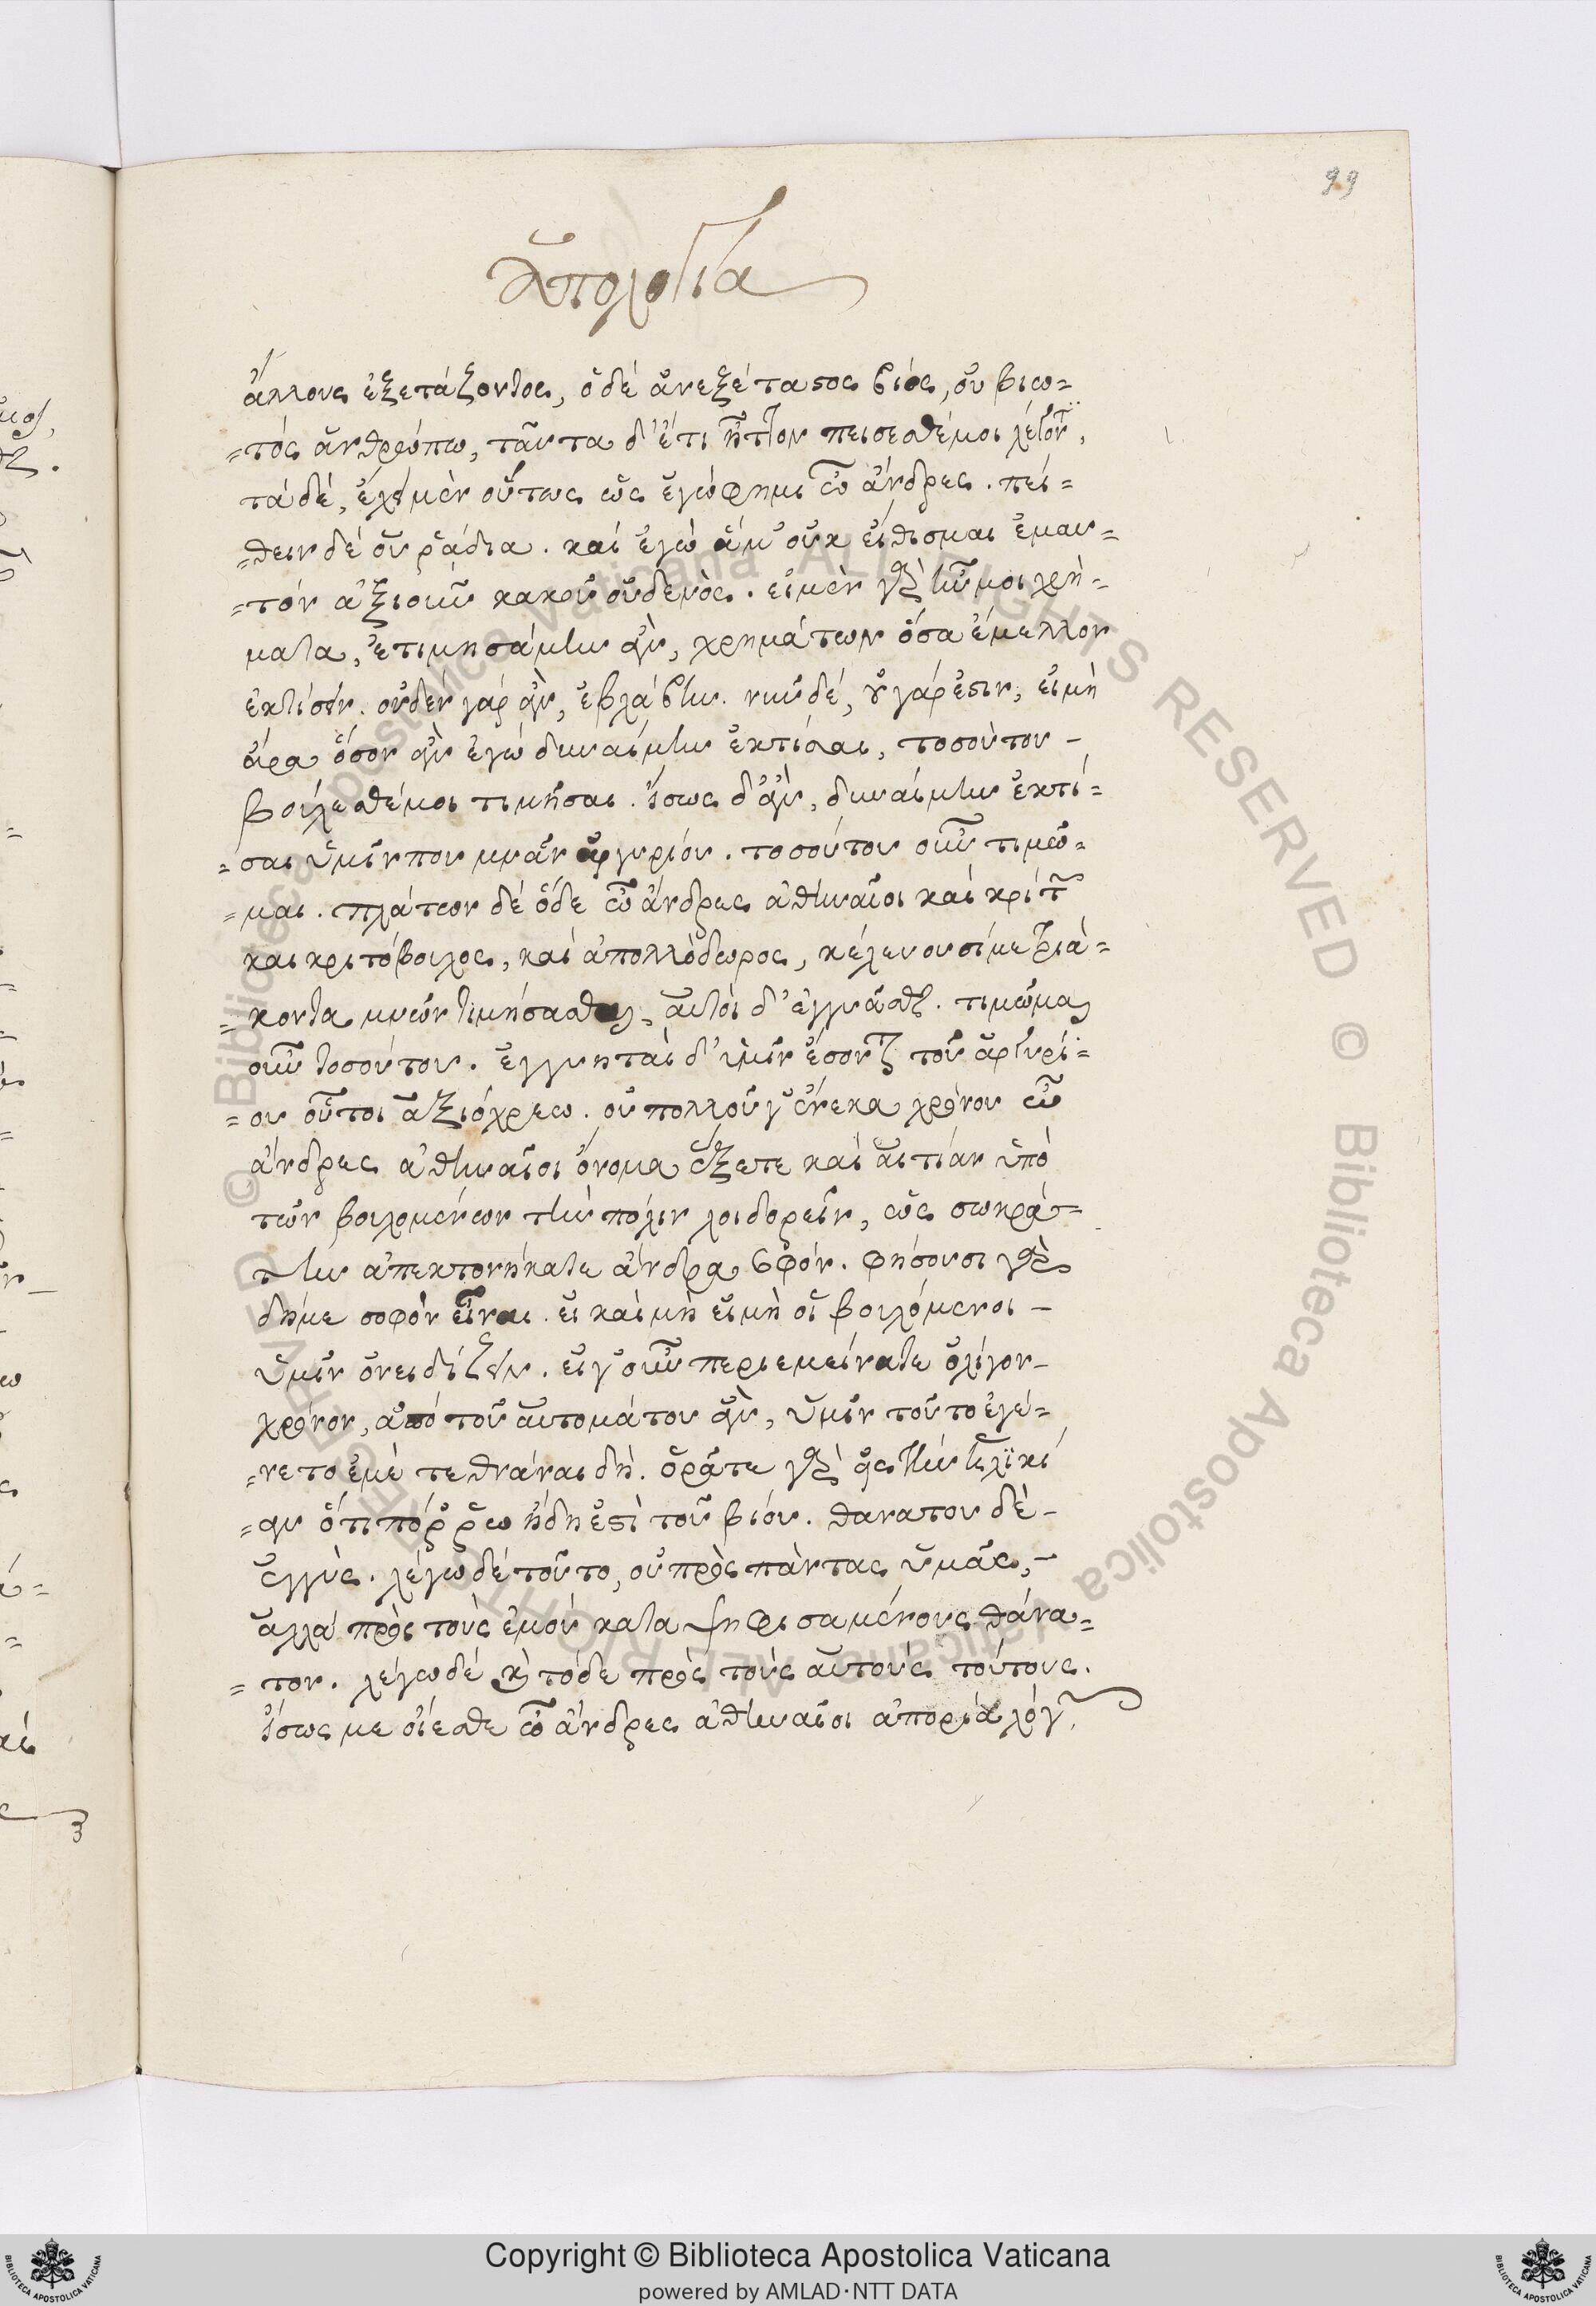 99
ἀπολογία
ἄλλους ἐξετάζοντος, ὁ δὲ ἀνεξέταστος βίος, οὐ βιω=
=τὸς ἀνθρώπω, ταῦτα δ' ἔτι ἧττον πείσεσθέ μοι λέγοντι,
τὰ δὲ, ἔχει μὲν οὕτως ὡς ἐγώ φημι ὦ ἄνδρες. πεί=
=θειν δὲ οὐ ῥάδια. καὶ ἐγὼ ἅμ' οὐκ εἴθισμαι ἐμαυ=
=τὸν ἀξιοῦν κακοῦ οὐδενὸς. εἰ μὲν γὰρ ἦν μοι χρή=
ματα, ἐτιμησάμην ἂν, χρημάτων ὅσα ἔμελλον
ἐκτίσειν. οὐδὲν γὰρ ἂν, ἐβλάβην. νῦν δὲ, οὐ γάρ ἐστιν, εἰ μὴ
ἄρα ὅσον ἂν ἐγὼ δυναίμην ἐκτίσαι, τοσούτου –
βούλεσθέ μοι τιμῆσαι. ἴσως δ' ἂν, δυναίμην ἐκτί=
=σαι ὑμῖν που μνᾶν ἀργυρίου. τοσούτου οὖν τιμῶ=
=μαι. πλάτων δὲ ὅδε ὦ ἄνδρες ἀθηναῖοι καὶ κρίτων
και κριτόβουλος, καὶ ἀπολλόδωρος, κελεύουσί με τριά=
=κοντα μνῶν τιμήσασθαι, αὐτοὶ δ' ἐγγυᾶσθαι. τιμῶμαι
οὖν τοσούτου. ἐγγυηταὶ δ' ὑμῖν ἔσονται τοῦ ἀργυρί=
=ου οὗτοι ἀξιόχρεω. οὐ πολλοῦ γ' ἕνεκα χρόνου ὦ
ἄνδρες ἀθηναῖοι ὄνομα ἕξετε καὶ αἰτίαν ὑπὸ
τῶν βουλομένων τὴν πόλιν λοιδορεῖν, ὡς σωκρά=
την ἀπεκτονήκατε ἄνδρα σοφόν. φήσουσι γὰρ
δή με σοφὸν εἶναι. εἰ καὶ μὴ εἰμὴ οἱ βουλόμενοι –
ὑμῖν ὀνειδίζειν. εἰ γ' οὖν περιεμείνατε ὀλίγον –
χρόνον, ἀπό τοῦ αὐτομάτου ἂν, ὑμῖν τοῦτο ἐγέ=
=νετο ἐμὲ τεθνάναι δή. ὁρᾶτε γὰρ εἰς τὴν ἡλικί
=αν ὅτι πόῤῥω ἤδη ἐστὶ τοῦ βίου. θανατου δὲ –
ἐγγὺς. λέγω δὲ τοῦτο, οὐ πρὸς πάντας ὑμᾶς, –
ἀλλὰ πρὸς τοὺς ἐμοῦ καταψηφισαμένους θάνα=
=τον. λέγω δέ καὶ τόδε πρὸς τοὺς αὐτοὺς τούτους.
ἴσως με οἴεσθε ὦ ἄνδρες ἀθηναῖοι ἀπορία λόγων
© Biblioteca Apostolica Vaticana ALL RIGHTS RESERVED © Biblioteca Apostolica Vaticana ALL RIGHTS RESERVED
Copyright © Biblioteca Apostolica Vaticana
powered by AMLAD·NTT DATA